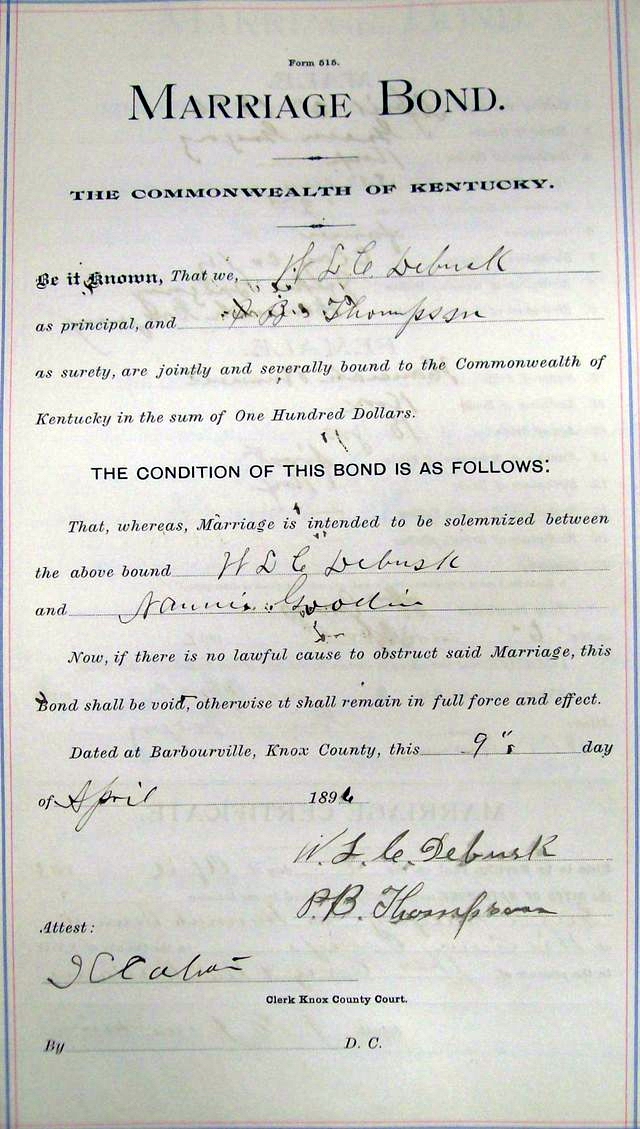 Form 515.
MARRIAGE BOND.
THE COMMONWEALTH OF KENTUCKY.
Be it Known, That we, W L C Debusk
as principal, and B. Thompson
as surety, are jointly and severally bound to the Commonwealth of
Kentucky in the sum of One Hundred Dollars.
THE CONDITION OF THIS BOND IS AS FOLLOWS:
That, whereas, Marriage is intended to be solemnized between
the above bound W L C Debusk
and Nannie Goodin
Now, if there is no lawful cause to obstruct said Marriage, this
Bond shall be void, otherwise it shall remain in full force and effect.
Dated at Barbourville, Knox County, this 9" day
of April 1896
W. L. C. Debusk
P. B. Thompson
Attest:
Clerk Knox County Court.
By D. C.